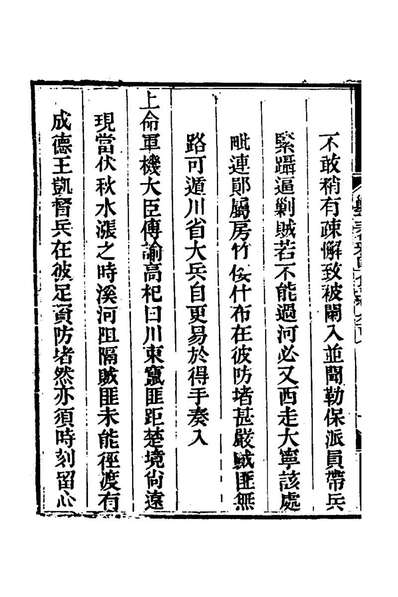 不敢稍有疎懈致被闌入並聞勒保派員帶兵
緊躡逼剿賊若不能過河必又西走大寧該處
毗連鄖屬房竹佞什布在彼防堵甚嚴賊匪無
路可遁川省大兵自更易於得手奏入
上命軍機大臣傳諭高杞曰川東竄匪距楚境尚遠
現當伏秋水漲之時溪河阻隔賊匪未能徑渡有
成德王凱督兵在彼足資防堵然亦須時刻留心